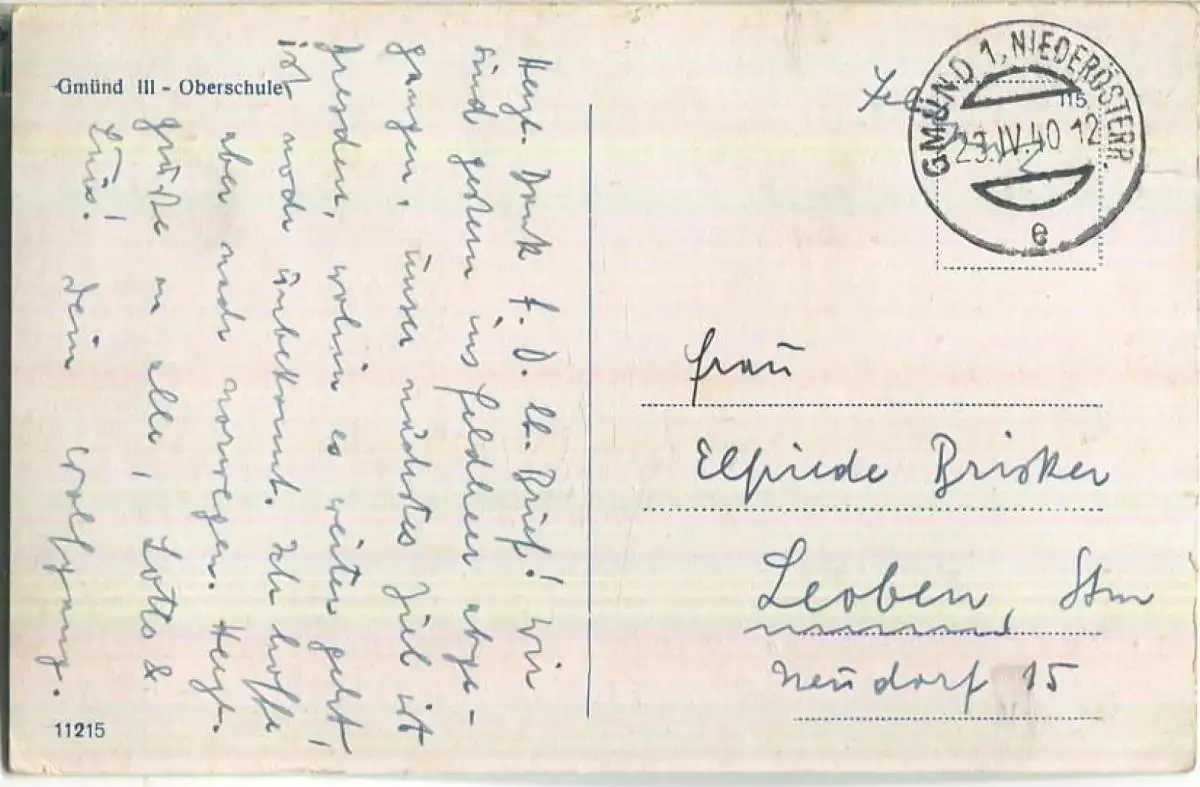 Gmünd III - Oberschule
Herzl. Dank f. D. lb. Brief! Wir
sind gestern ins Feldheer abge-
gangen. Unser nächstes Ziel ist
Dresden, wohin es weiter geht,
ist noch unbekannt. Ich hoffe
aber nach Norwegen. Herzl.
Grüße an alle, Lotto &
Dein Wolfgang.
11215
GMÜND 1, NIEDERÖSTERR.
23.IV.40 12
e
115
Frau
Elfriede Brisker
Leoben, Stm
Neudorf 15